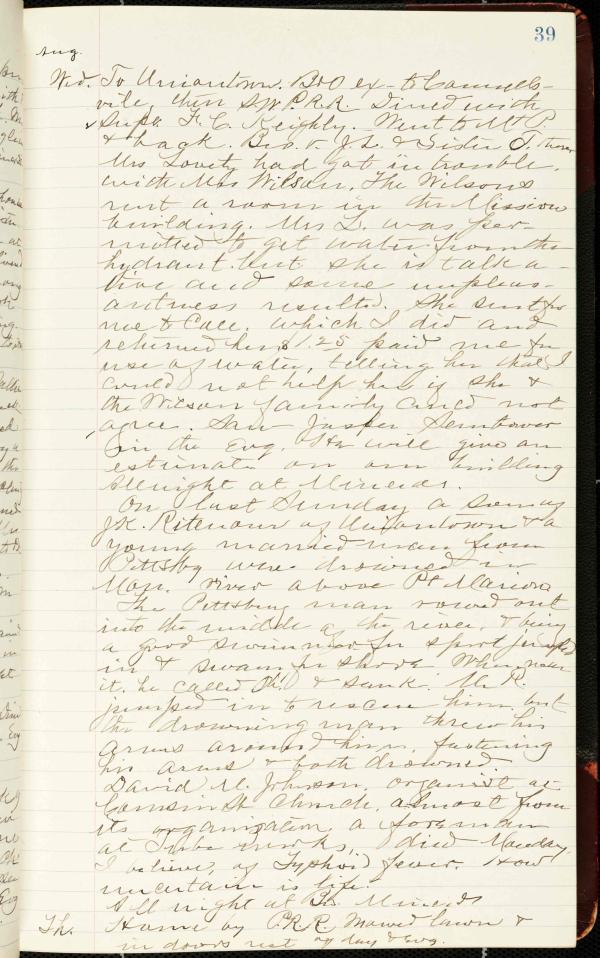 39
Aug.
Wed. To Uniontown. B&O ex- to Connells-
ville, then S.W. P.R.R. Dined with
Supt. F. C. Keighly. Went to Mt P
& back. Bro. & Sister J. there
Mrs Lovety had got in trouble.
with Mrs Wilson. The Wilsons
rent a room in the Mission
building. Mrs L. was per-
mitted to get water from the
hydrant. but she is talka-
tive and some unpleas-
antness resulted. She sent for
me to call. which I did and
returned her $1.25 paid me for
use of water, telling her that I
could not help her if she &
the Wilson family could not
agree. Saw Jasper Sembower
in the Evg. He will give an
estimate on our building
All night at Minerds.
On last Sunday a son of
J.K. Ritenour of Uniontown & a
young married man from
Pittsbg were drowned in
Mon. river above Pt Marion
The Pittsburg man rowed out
into the middle of the river, & being
a good swimmer, for sport jumped
in & swam for shore. When near
it, he called Oh! & sank. Mr R.
jumped in to rescue him but
the drowning man threw his
arms around him, fastening
his arms & both drowned.
David M. Johnson, organist at
Cousin St Church, almost from
its organization, a foreman
at Tube works, died Monday,
I believe, of Typhoid fever. How
uncertain is life.
All night at Bro Minerds
Th. Home by P.R.R. Mowed lawn &
in doors rest of day & Evg.